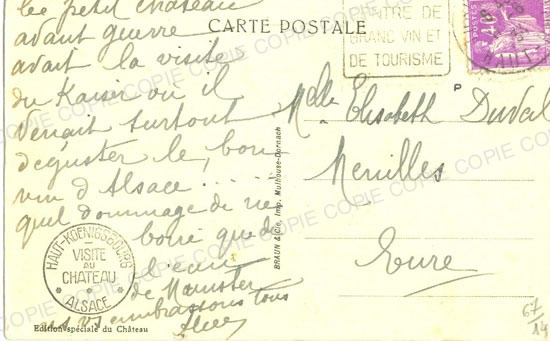 le petit château
avant guerre
avait la visite
du Kaiser où il
venait surtout
déguster le bon
vin d'Alsace ......
quel dommage de
boire que de
l'eau
de Munster
embrassons tous
CARTE POSTALE
CENTRE DE
GRANC VIN ET
DE TOURISME
POSTES
40c
P
Melle Elisabeth Duval
Menilles
Eure
BRAUN & Cie, Imp. Mulhouse-Dornach
HAUT-KOENIGSBOURG
VISITE
AU
CHATEAU
ALSACE
Edition spéciale du Château
67
14
COPIE COPIE COPIE COPIE COPIE